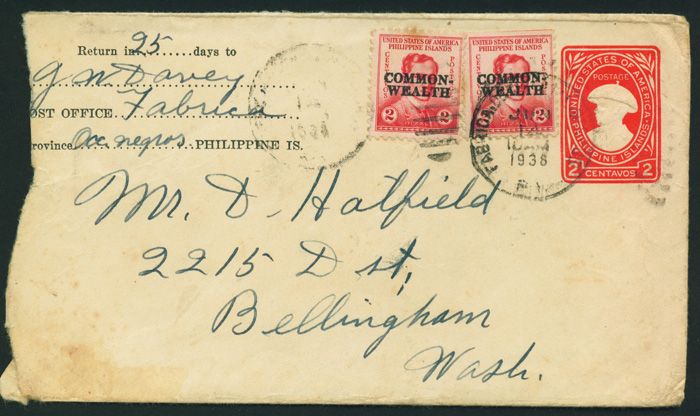 Return in 25 days to
G W Davey
OST OFFICE Fabrica
rovince Occ negros PHILIPPINE IS.
UNITED STATES OF AMERICA
PHILIPPINE ISLANDS
COMMON-
WEALTH
2 2
UNITED STATES OF AMERICA
PHILIPPINE ISLANDS
COMMON-
WEALTH
2 2
UNITED STATES OF AMERICA
POSTAGE
PHILIPPINE ISLANDS
2 CENTAVOS 2
1938
Mr. D. Hatfield
2215 D st,
Bellingham
Wash.